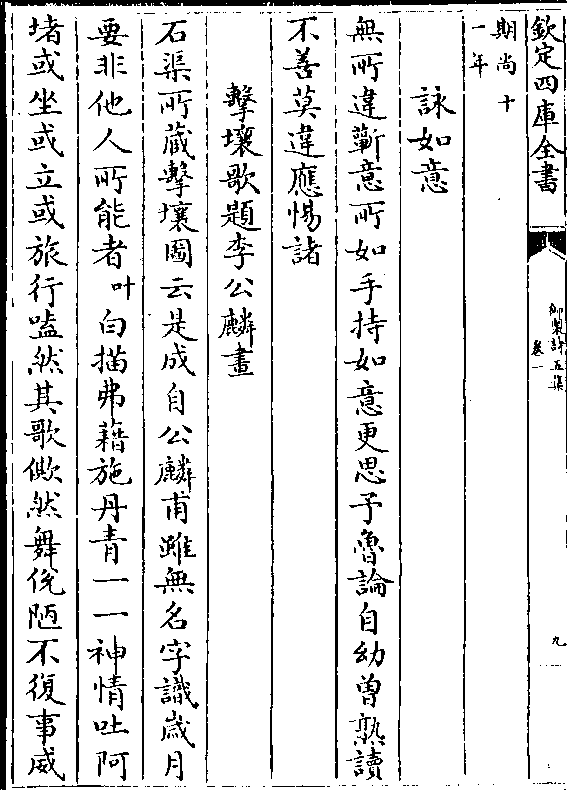 欽定四庫全書
御製詩五集
卷一
九
期尚十
一年
詠如意
無所違蘄意所如手持如意更思予魯論自幼曾熟讀
不善莫違應惕諸
擊壤歌題李公麟畫
石渠所蔵擊壤圖云是成自公麟甫雖無名字識嵗月
要非他人所能者叶白描弗藉施丹青一一神情吐阿
堵或坐或立或旅行嗑然其歌僛然舞侻陋不復事威